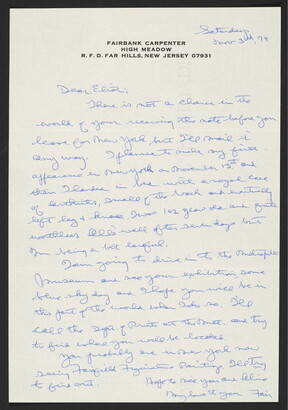 FAIRBANK CARPENTER
HIGH MEADOW
R. F. D. FAR HILLS, NEW JERSEY 07931
Saturday,
Nov 3rd, 79
Dear Eliot:
There is not a chance in the
world of your receiving this note before you
leave for New York but I'll mail it
any way. I planned to make my first
appearance in New York on November 1st and
then I landed in bed with a royal case
of arthritis, small of the back and
left leg & knee. I was 102 year old and quite
worthless. All well after seven days but
I'm being a bit careful.
I am going to drive in to the Metropolitan
Museum and see your exhibition some
blue sky day and I hope you will be in
this part of the world when I do so. I'll
call the Dept of Prints at the Met. and try
to find when you will be located.
You probably are in New York now
seeing Fairfield
to find out.
Hope to see you
My love to you Fair